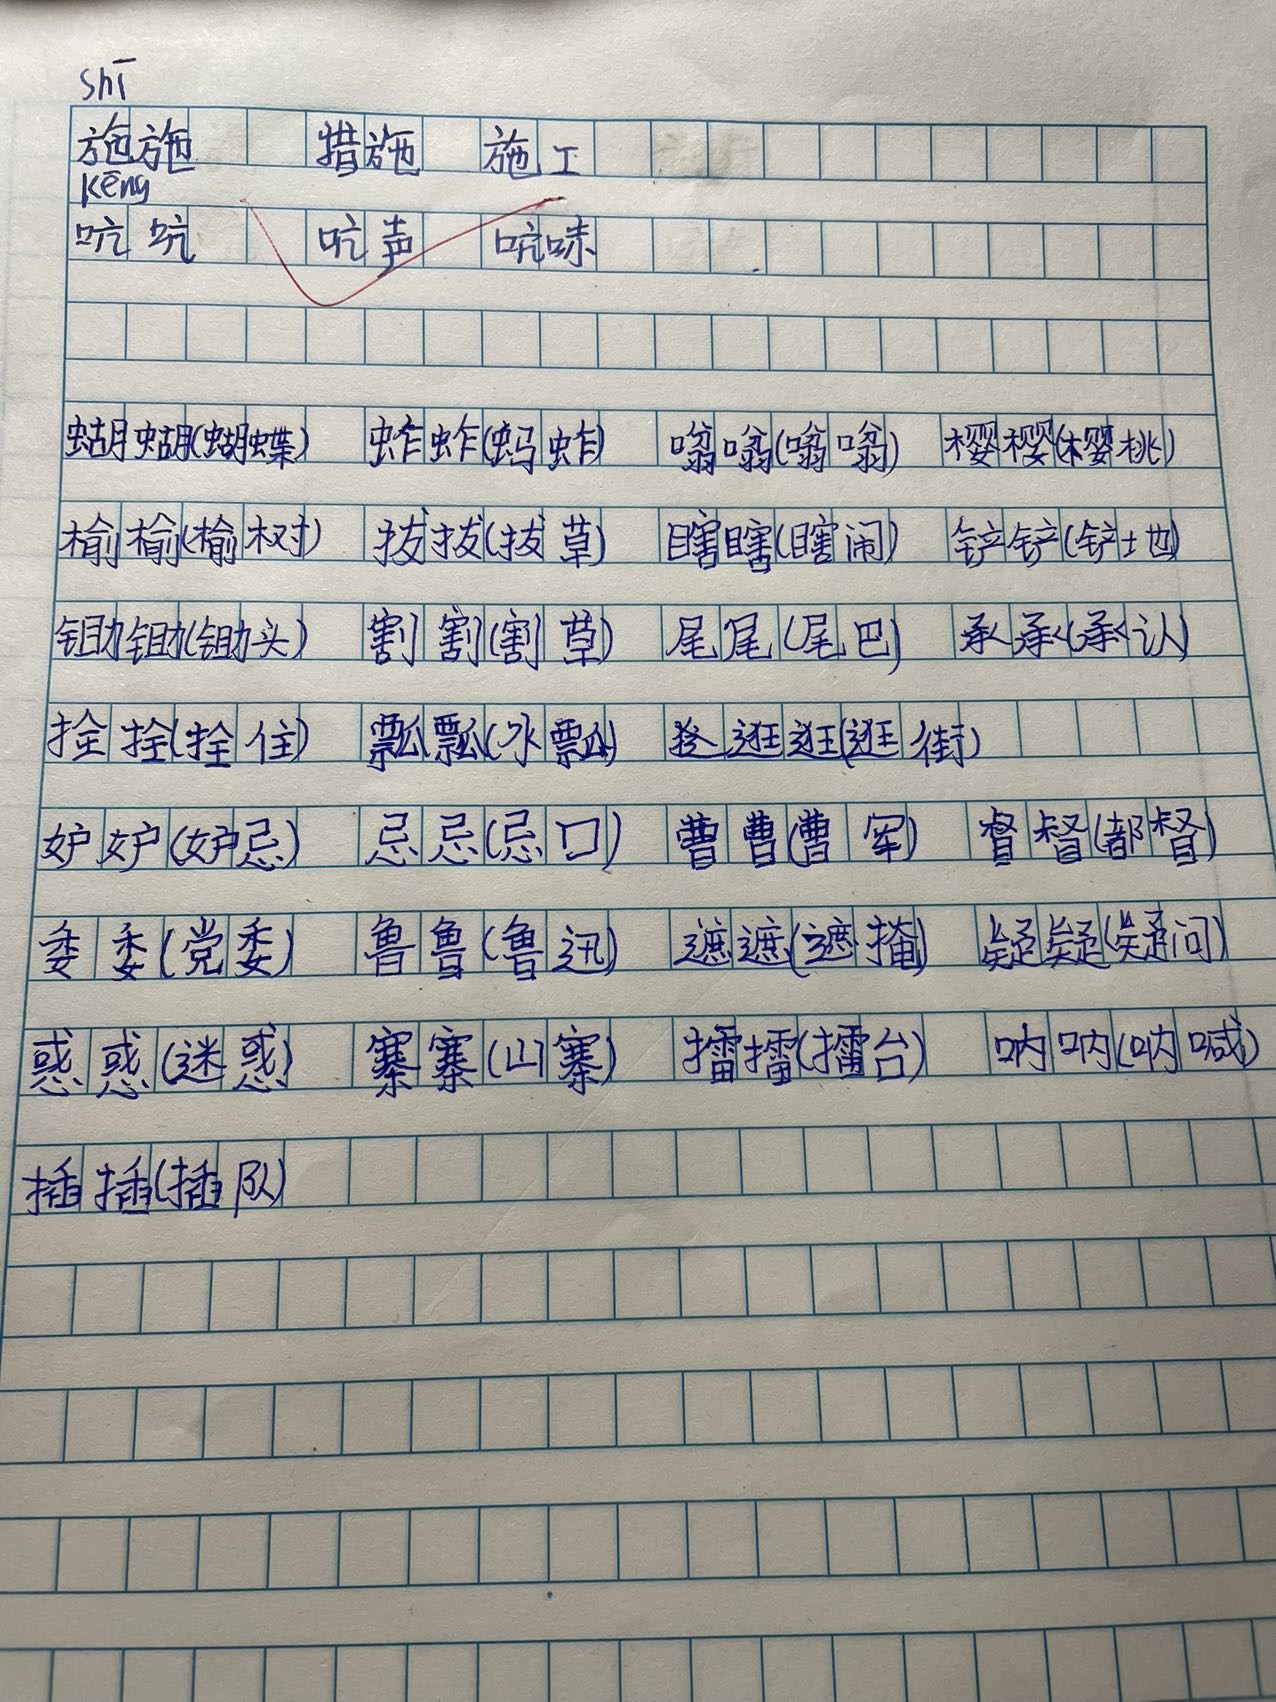 shī
施施 措施 施工
kēng
吭吭 吭声 吭哧
蝴蝴(蝴蝶) 蚱蚱(蚂蚱) 嗡嗡(嗡嗡) 樱樱(樱桃)
榆榆(榆树) 拔拔(拔草) 瞎瞎(瞎闹) 铲铲(铲地)
锄锄(锄头) 割割(割草) 尾尾(尾巴) 承承(承认)
拴拴(拴住) 瓢瓢(水瓢) 逛逛(逛街)
妒妒(妒忌) 忌忌(忌口) 曹曹(曹军) 督督(都督)
委委(党委) 鲁鲁(鲁迅) 遮遮(遮掩) 疑疑(疑问)
惑惑(迷惑) 寨寨(山寨) 擂擂(擂台) 呐呐(呐喊)
插插(插队)